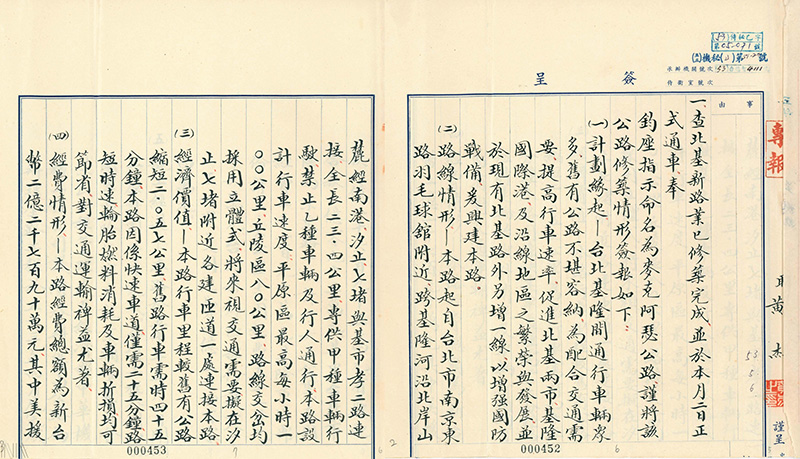 專報
事由
承辦機關號次
侍衛室號次
簽呈
職黃杰
謹呈
53
5
6
一、查北基新路業已修築完成、並於本月二日正
式通車、奉
鈞座指示命名為麥克阿瑟公路謹將該
公路修築情形簽報如下：
(一)計劃緣起—台北基隆間通行車輛衆
多舊有公路不堪容納為配合交通需
要、提高行車速率、促進北基兩市基隆
國際港及沿線地區之繁榮與發展並
於現有北基路外另增一線以增强國防
戰備爰興建本路。
(二)路線情形—本路起自台北市南京東
路羽毛球館附近、跨基隆河沿北岸山
000452
6
麓經南港、汐止七堵與基市孝二路連
接、全長二三．四公里專供甲種車輛行
駛禁止乙種車輛及行人通行本路設
計行車速度、平原區最高每小時一
〇〇公里、丘陵區八〇公里、路線交岔均
採用立體式、將來視交通需要擬在汐
止七堵附近各建匝道一處連接本路
(三)經濟價值—本路行車里程較舊有公路
縮短二．〇五七公里舊路行車需時四十五
分鐘、本路因係快速車道僅需二十五分鐘路
短時速輪胎燃料消耗及車輛折損均可
節省對交通運輸裨益尤著
(四)經費情形—本路經費總額為新台
幣二億二千七百九十萬元、其中美援
000453
7